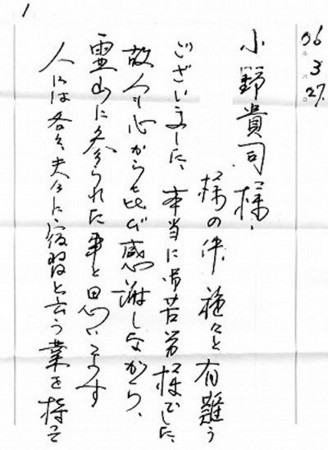 1
06
3
27
小野貴司様
様の件、種々と有難う
ございました、本当に御苦労様でした、
故人も心から喜び感謝しながら、
霊山に参られた事と思います
人には各々、夫々に宿習と言う業を持って